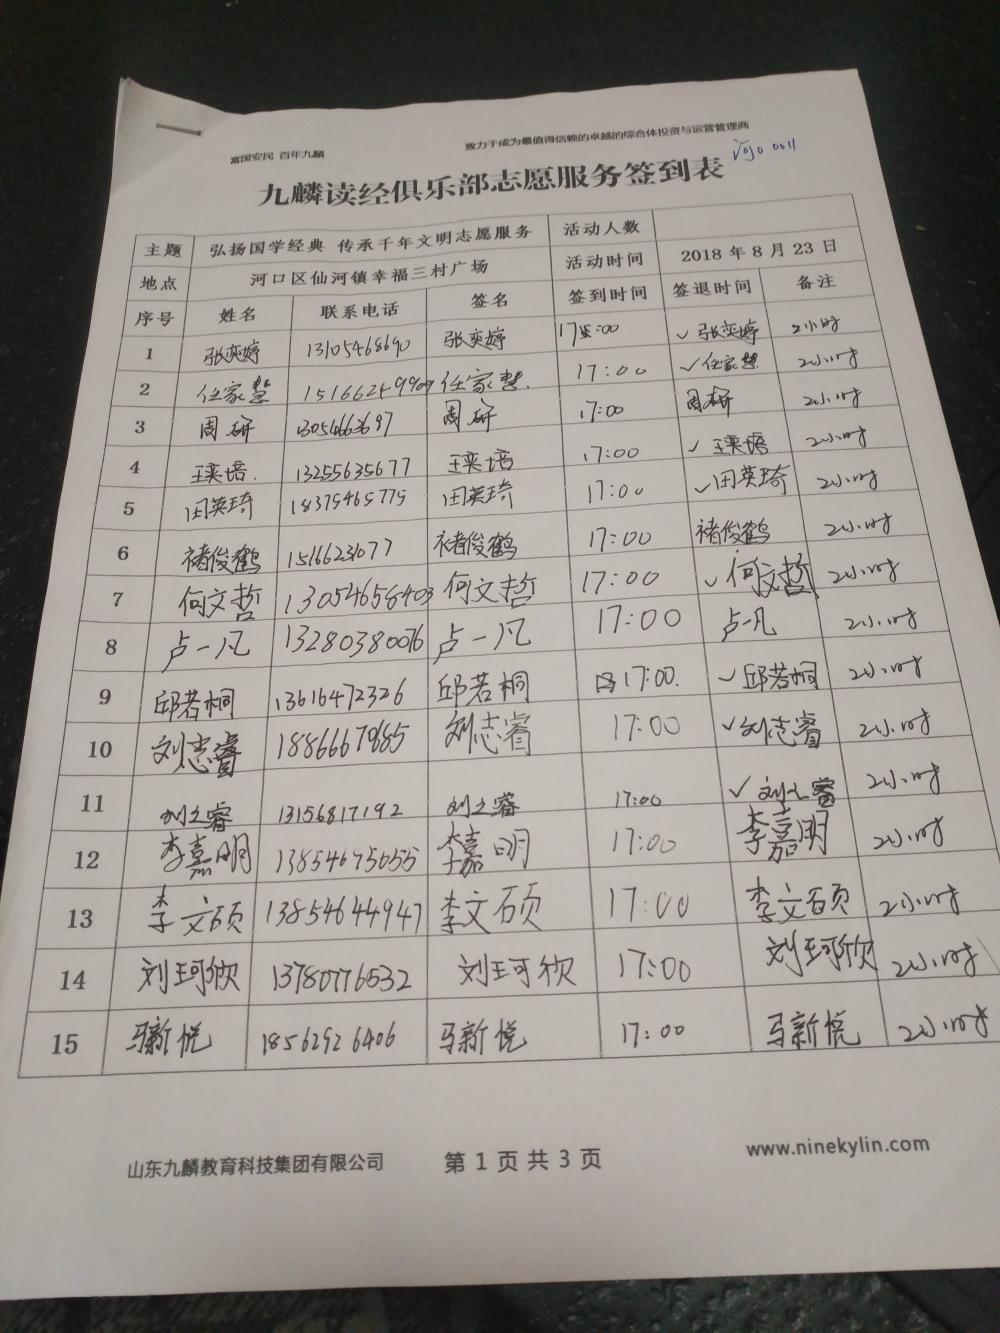 富国安民 百年九麟 致力于成为最值得信赖的卓越的综合体投资与运营管理商
0011
九麟读经俱乐部志愿服务签到表
主题 弘扬国学经典 传承千年文明志愿服务 活动人数
地点 河口区仙河镇幸福三村广场 活动时间 2018年8月23日
序号 姓名 联系电话 签名 签到时间 签退时间 备注
1 张奕婷 13105468690 张奕婷 17:00 ✓张奕婷 2小时
2 任家慧 15166259909 任家慧. 17:00 ✓任家慧 2小时
3 周研 周研 17:00 周研 2小时
4 王奕培. 13255635677 王奕培 17:00 ✓王奕培 2小时
5 田英琦 18375465775 田英琦 17:00 ✓田英琦 2小时
6 褚俊鹤 褚俊鹤 17:00 褚俊鹤 2小时
7 何文哲 13054658403 何文哲 17:00 ✓何文哲 2小时
8 卢一凡 13280380076 卢一凡 17:00 卢一凡 2小时
9 邱若桐 13616472326 邱若桐 17:00. ✓邱若桐 2小时
10 刘志睿 刘志睿 17:00 ✓刘志睿 2小时
11 刘之睿 13156817192 刘之睿 17:00 ✓刘之睿 2小时
12 李嘉明 13854675055 李嘉明 17:00 李嘉明 2小时
13 李文硕 13854644947 李文硕 17:00 李文硕 2小时
14 刘珂欣 13780776532 刘珂欣 17:00 刘珂欣 2小时
15 马新悦 18562926406 马新悦 17:00 马新悦 2小时
山东九麟教育科技集团有限公司 第1页共3页 www.ninekylin.com